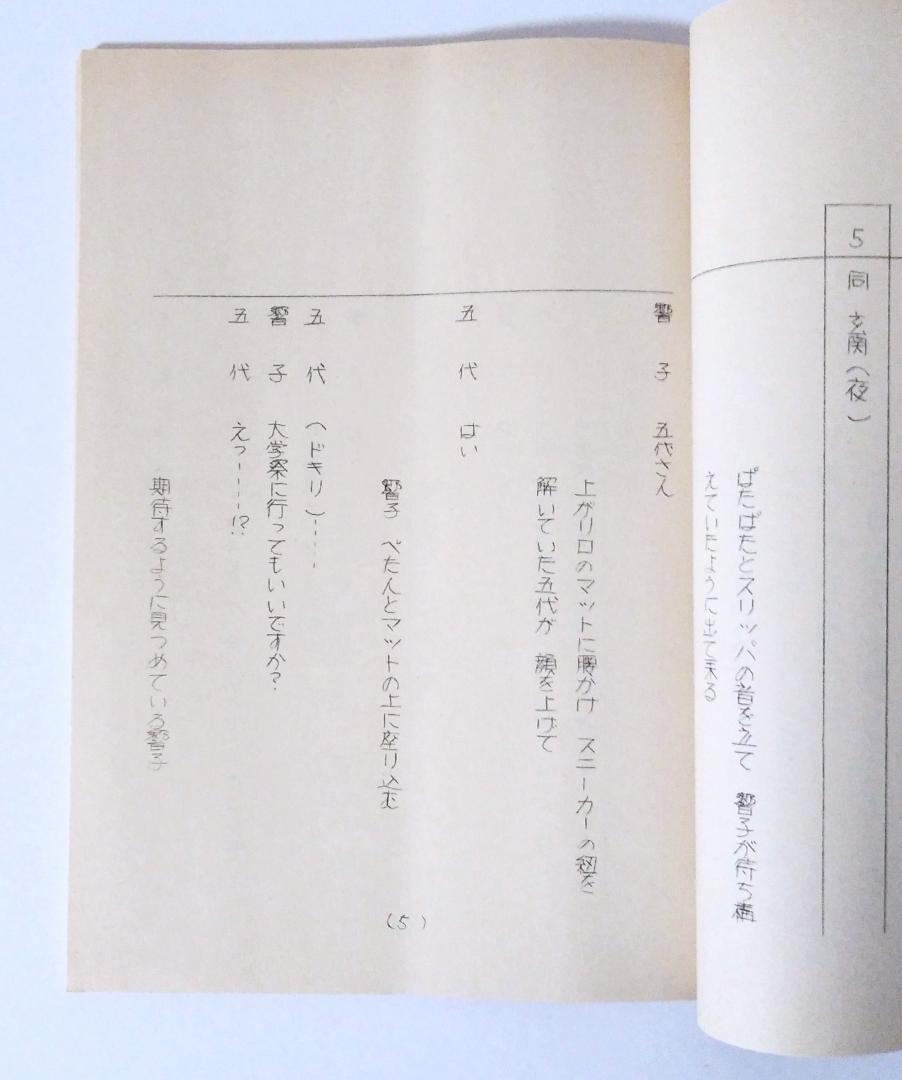 5 同 玄関(夜)
ぱたぱたとスリッパの音を立て 響子が待ち構
えていたように出て来る
響子 五代さん
上がり口のマットに腰かけ スニーカーの紐を
解いていた五代が 顔を上げて
五代 はい
響子 ぺたんとマットの上に座り込む
五代 (ドキリ)‥‥
響子 大学祭に行ってもいいですか?
五代 えっ‥‥!?
期待するように見つめている響子
(5)